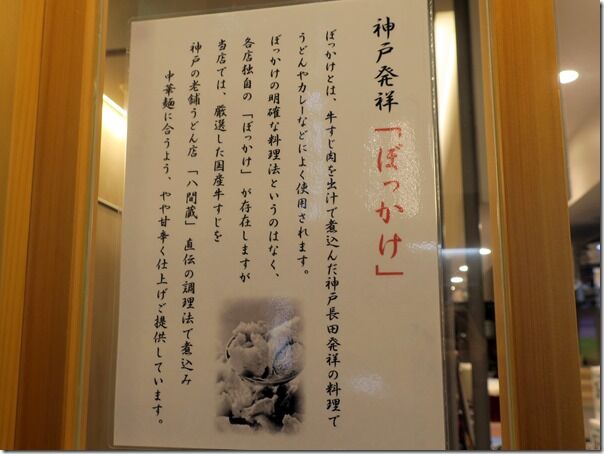 神戸発祥「ぼっかけ」
ぼっかけとは、牛すじ肉を出汁で煮込んだ神戸長田発祥の料理で
うどんやカレーなどによく使用されます。
ぼっかけの明確な料理法というのはなく、
各店独自の「ぼっかけ」が存在しますが
当店では、厳選した国産牛すじを
神戸の老舗うどん店「八間蔵」直伝の調理法で煮込み
中華麺に合うよう、やや甘辛く仕上げご提供しています。